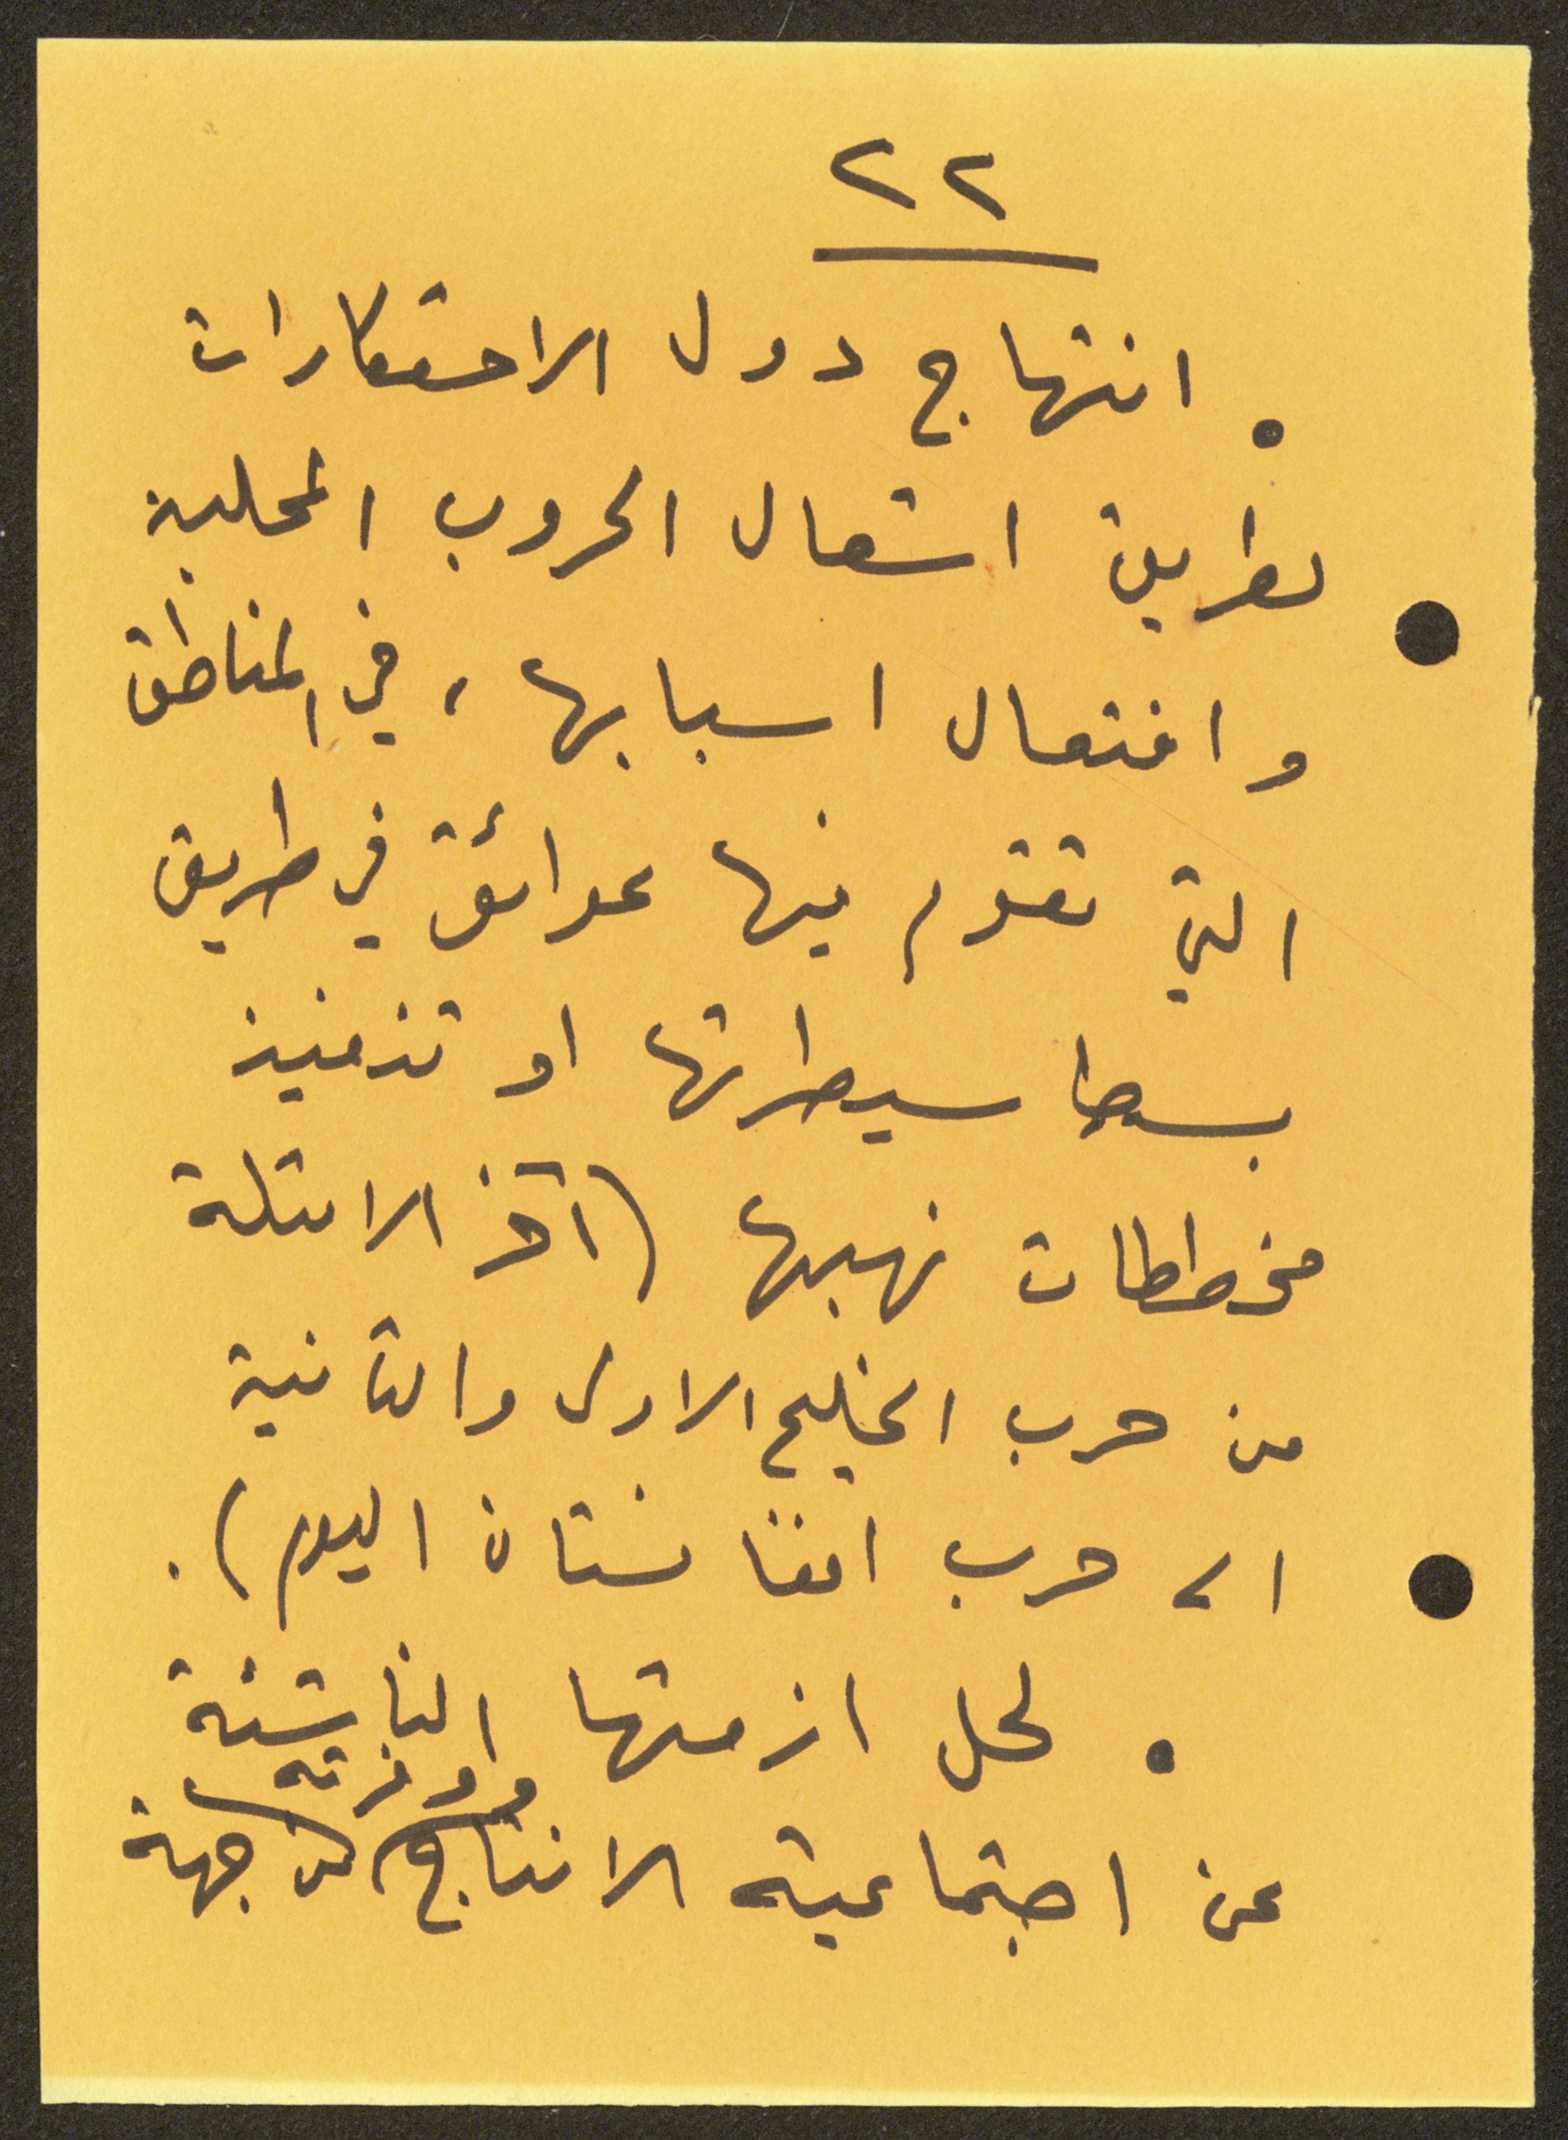 ٢٢
. انتهاج دول الاحتكارات
لطريق اشعال الحروب المحلية
وافتعال اسبابها، في المناطق
التي تقوم فيها عوائق في طريق
بسط سيطرتها او تنفيذ
مخططات نهبها (آخر الامثلة
من حرب الخليج الاولى والثانية
الى حرب افغانستان اليوم).
. لحل ازمتها الناشئة
عن اجتماعية الانتاج ووفرته من جهة